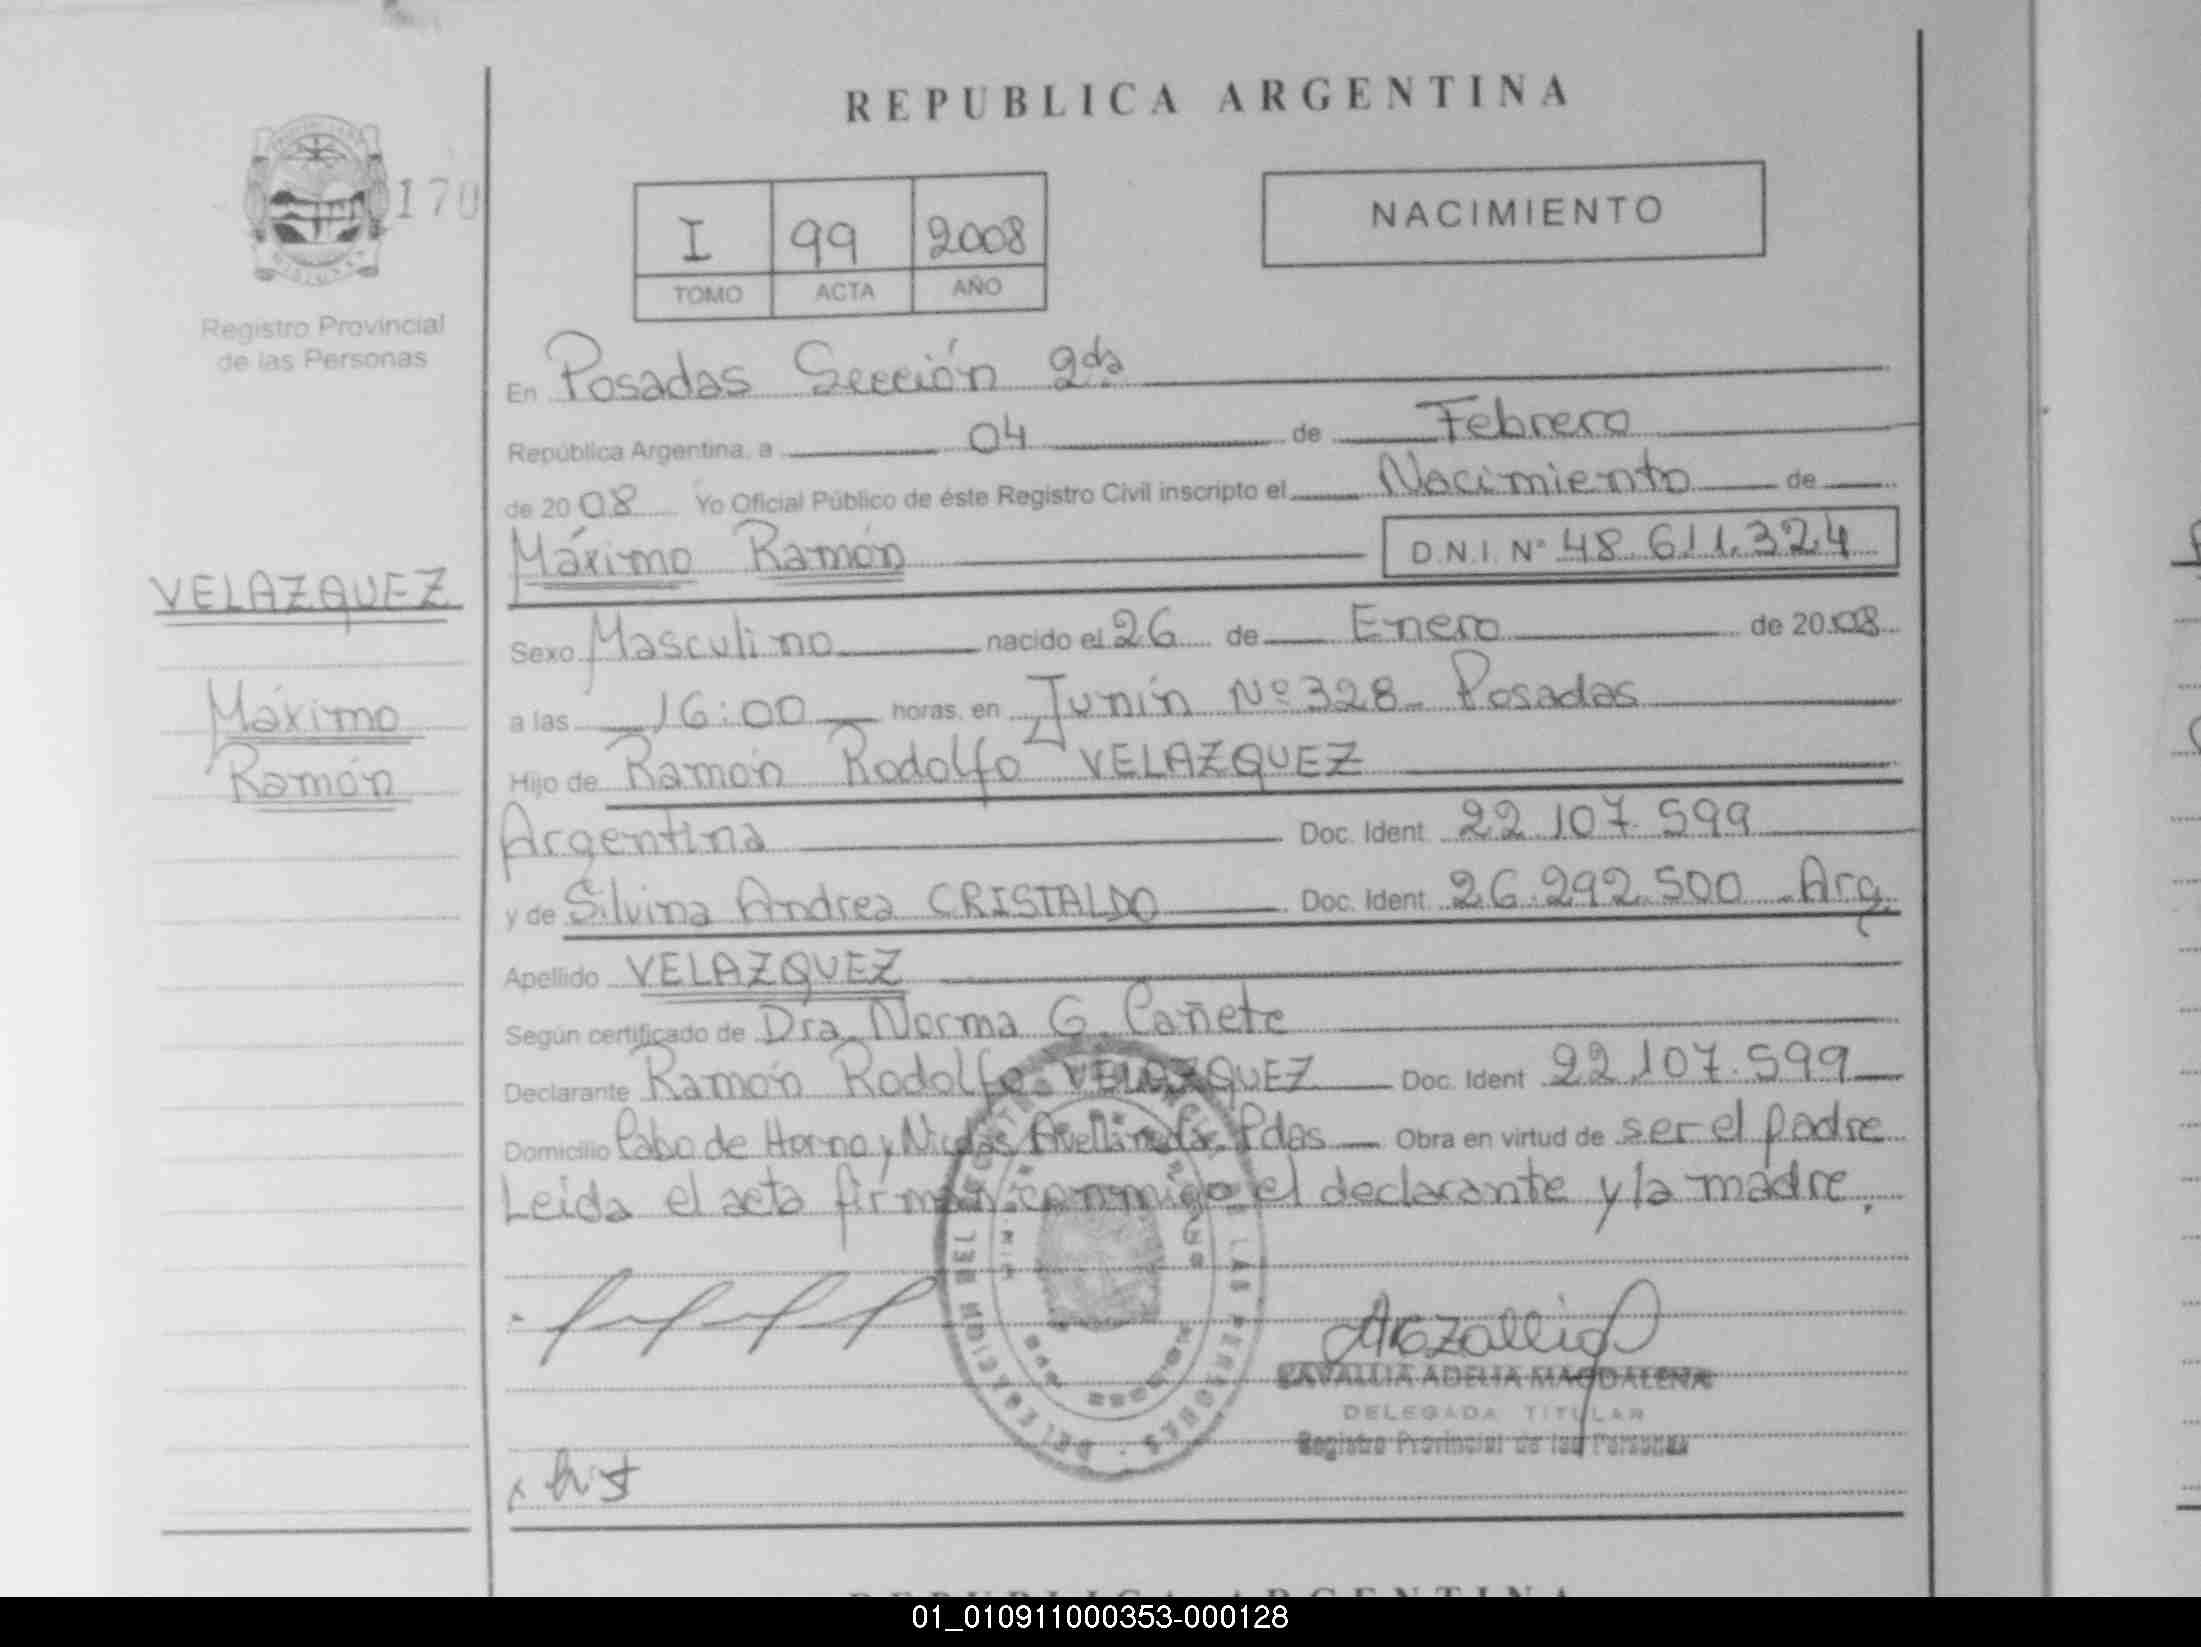 REPUBLICA ARGENTINA
170
I 99 2008
TOMO ACTA AÑO
NACIMIENTO
Registro Provincial
de las Personas
En Posadas Sección 2da
República Argentina, a 04 de Febrero
de 2008 Yo Oficial Público de éste Registro Civil inscripto el Nacimiento de
Máximo Ramón D.N.I. Nº 48.611.324
VELAZQUEZ
Máximo
Ramón
Sexo Masculino nacido el 26 de Enero de 2008
a las 16:00 horas, en Junín Nº 328 Posadas
Hijo de Ramón Rodolfo VELAZQUEZ
Argentina Doc. Ident 22.107.599
y de Silvina Andrea CRISTALDO Doc. Ident. 26.292.500 Arg.
Apellido VELAZQUEZ
Según certificado de Dra. Norma G. Cañete
Declarante Ramón Rodolfo VELAZQUEZ Doc. Ident 22.107.599
Domicilio Cabo de Horno y Nicolás Avellaneda, Pdas Obra en virtud de ser el padre
Leida el acta firman conmigo el declarante y la madre.
CAVALLIA ADELIA MAGDALENA
DELEGADA TITULAR
Registro Provincial de las Personas
REPUBLICA ARGENTINA
01_010911000353-000128